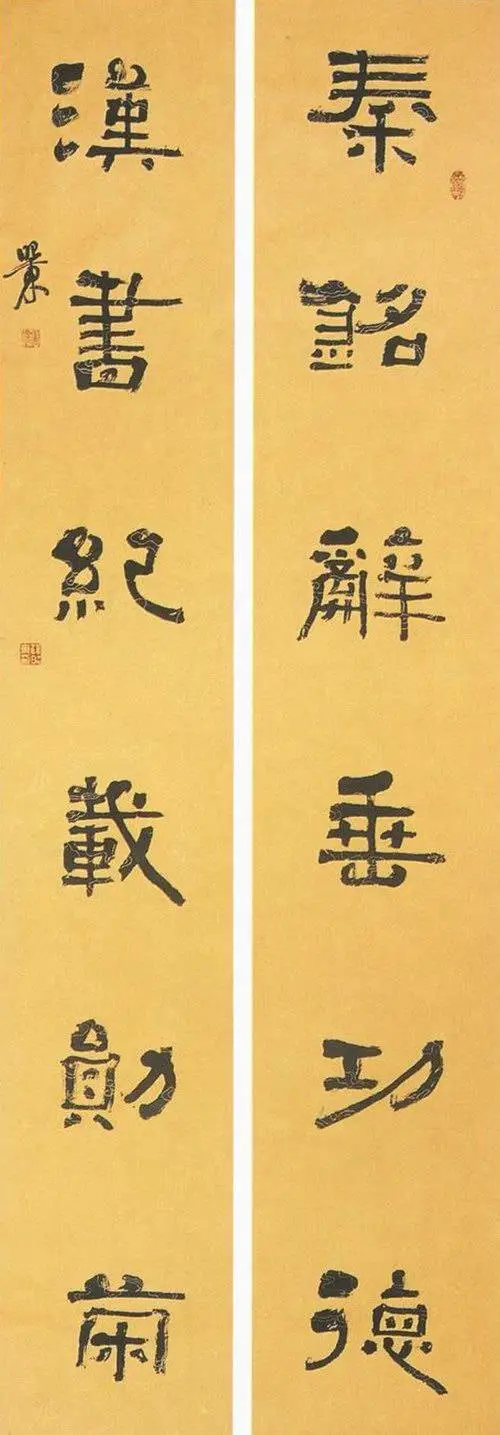 秦銘辭垂功德
漢書紀載勛